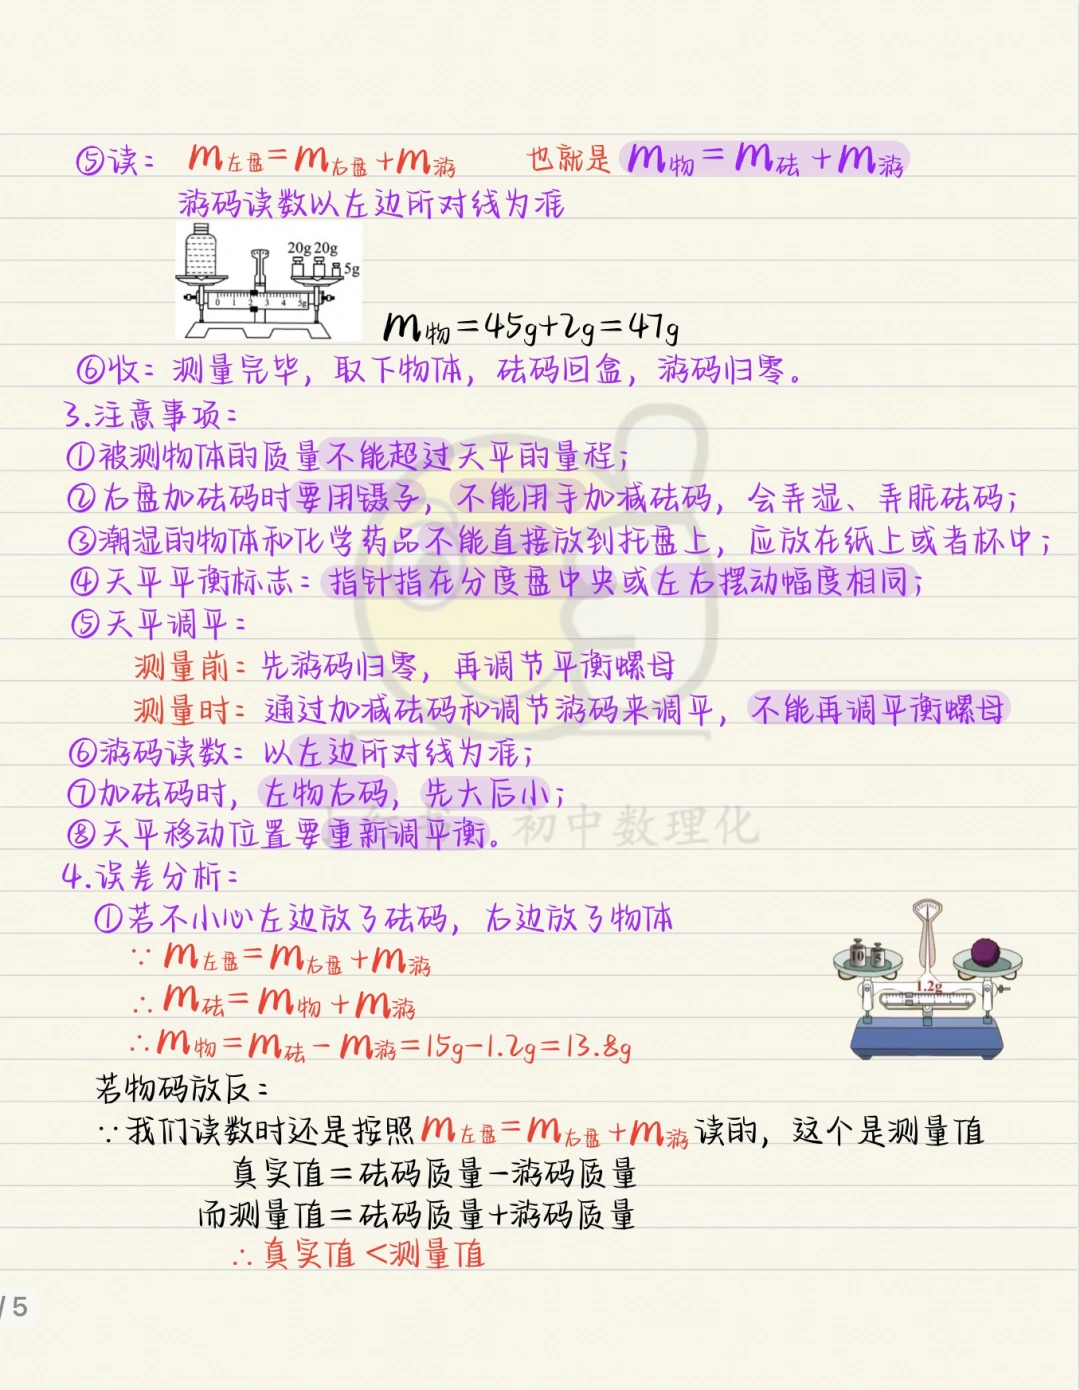 ⑤读： m左盘=m右盘+m游 也就是 m物=m砝+m游
游码读数以左边所对线为准
20g 20g
5g
0 1 2 3 4 5g
m物=45g+2g=47g
⑥收：测量完毕，取下物体，砝码回盒，游码归零。
3.注意事项：
①被测物体的质量不能超过天平的量程；
②右盘加砝码时要用镊子，不能用手加减砝码，会弄湿、弄脏砝码；
③潮湿的物体和化学药品不能直接放到托盘上，应放在纸上或者杯中；
④天平平衡标志：指针指在分度盘中央或左右摆动幅度相同；
⑤天平调平：
测量前：先游码归零，再调节平衡螺母
测量时：通过加减砝码和调节游码来调平，不能再调平衡螺母
⑥游码读数：以左边所对线为准；
⑦加砝码时，左物右码，先大后小；
初中数理化
⑧天平移动位置要重新调平衡。
4.误差分析：
①若不小心左边放了砝码，右边放了物体
∵ m左盘=m右盘+m游
10 5
1.2g
∴ m砝=m物+m游
∴m物=m砝-m游=15g-1.2g=13.8g
若物码放反：
∵我们读数时还是按照m左盘=m右盘+m游读的，这个是测量值
真实值=砝码质量-游码质量
而测量值=砝码质量+游码质量
∴真实值<测量值
/5